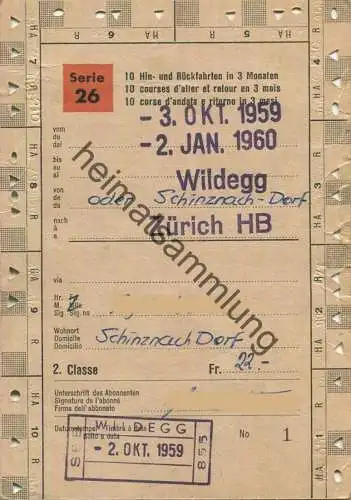 R 6 HA R 5 HA
Serie
26
10 Hin- und Rückfahrten in 3 Monaten
10 courses d'aller et retour en 3 mois
10 corse d'andata e ritorno in 3 mesi
vom
du
dal
- 3. OKT. 1959
bis
au
al
- 2. JAN. 1960
von
de
da
Wildegg
oder Schinznach-Dorf
nach
à
a
Zürich HB
via
Hr.
M.
Sig.
Wohnort
Domicile
Domicilio
Schinznach Dorf
2. Classe
Fr. 22.-
Unterschrift des Abonnenten
Signature de l'abonné
Firma dell'abbonato
Datumstempel Timbre à date
Bollo a data
No 1
SBB WILDEGG 855
- 2. OKT. 1959
HA 7
R
HA 8
R
HA 9
R
HA 10
R
R 4 HA
R 3 HA
R 2 HA
R 1 HA
heimatsammlung.de